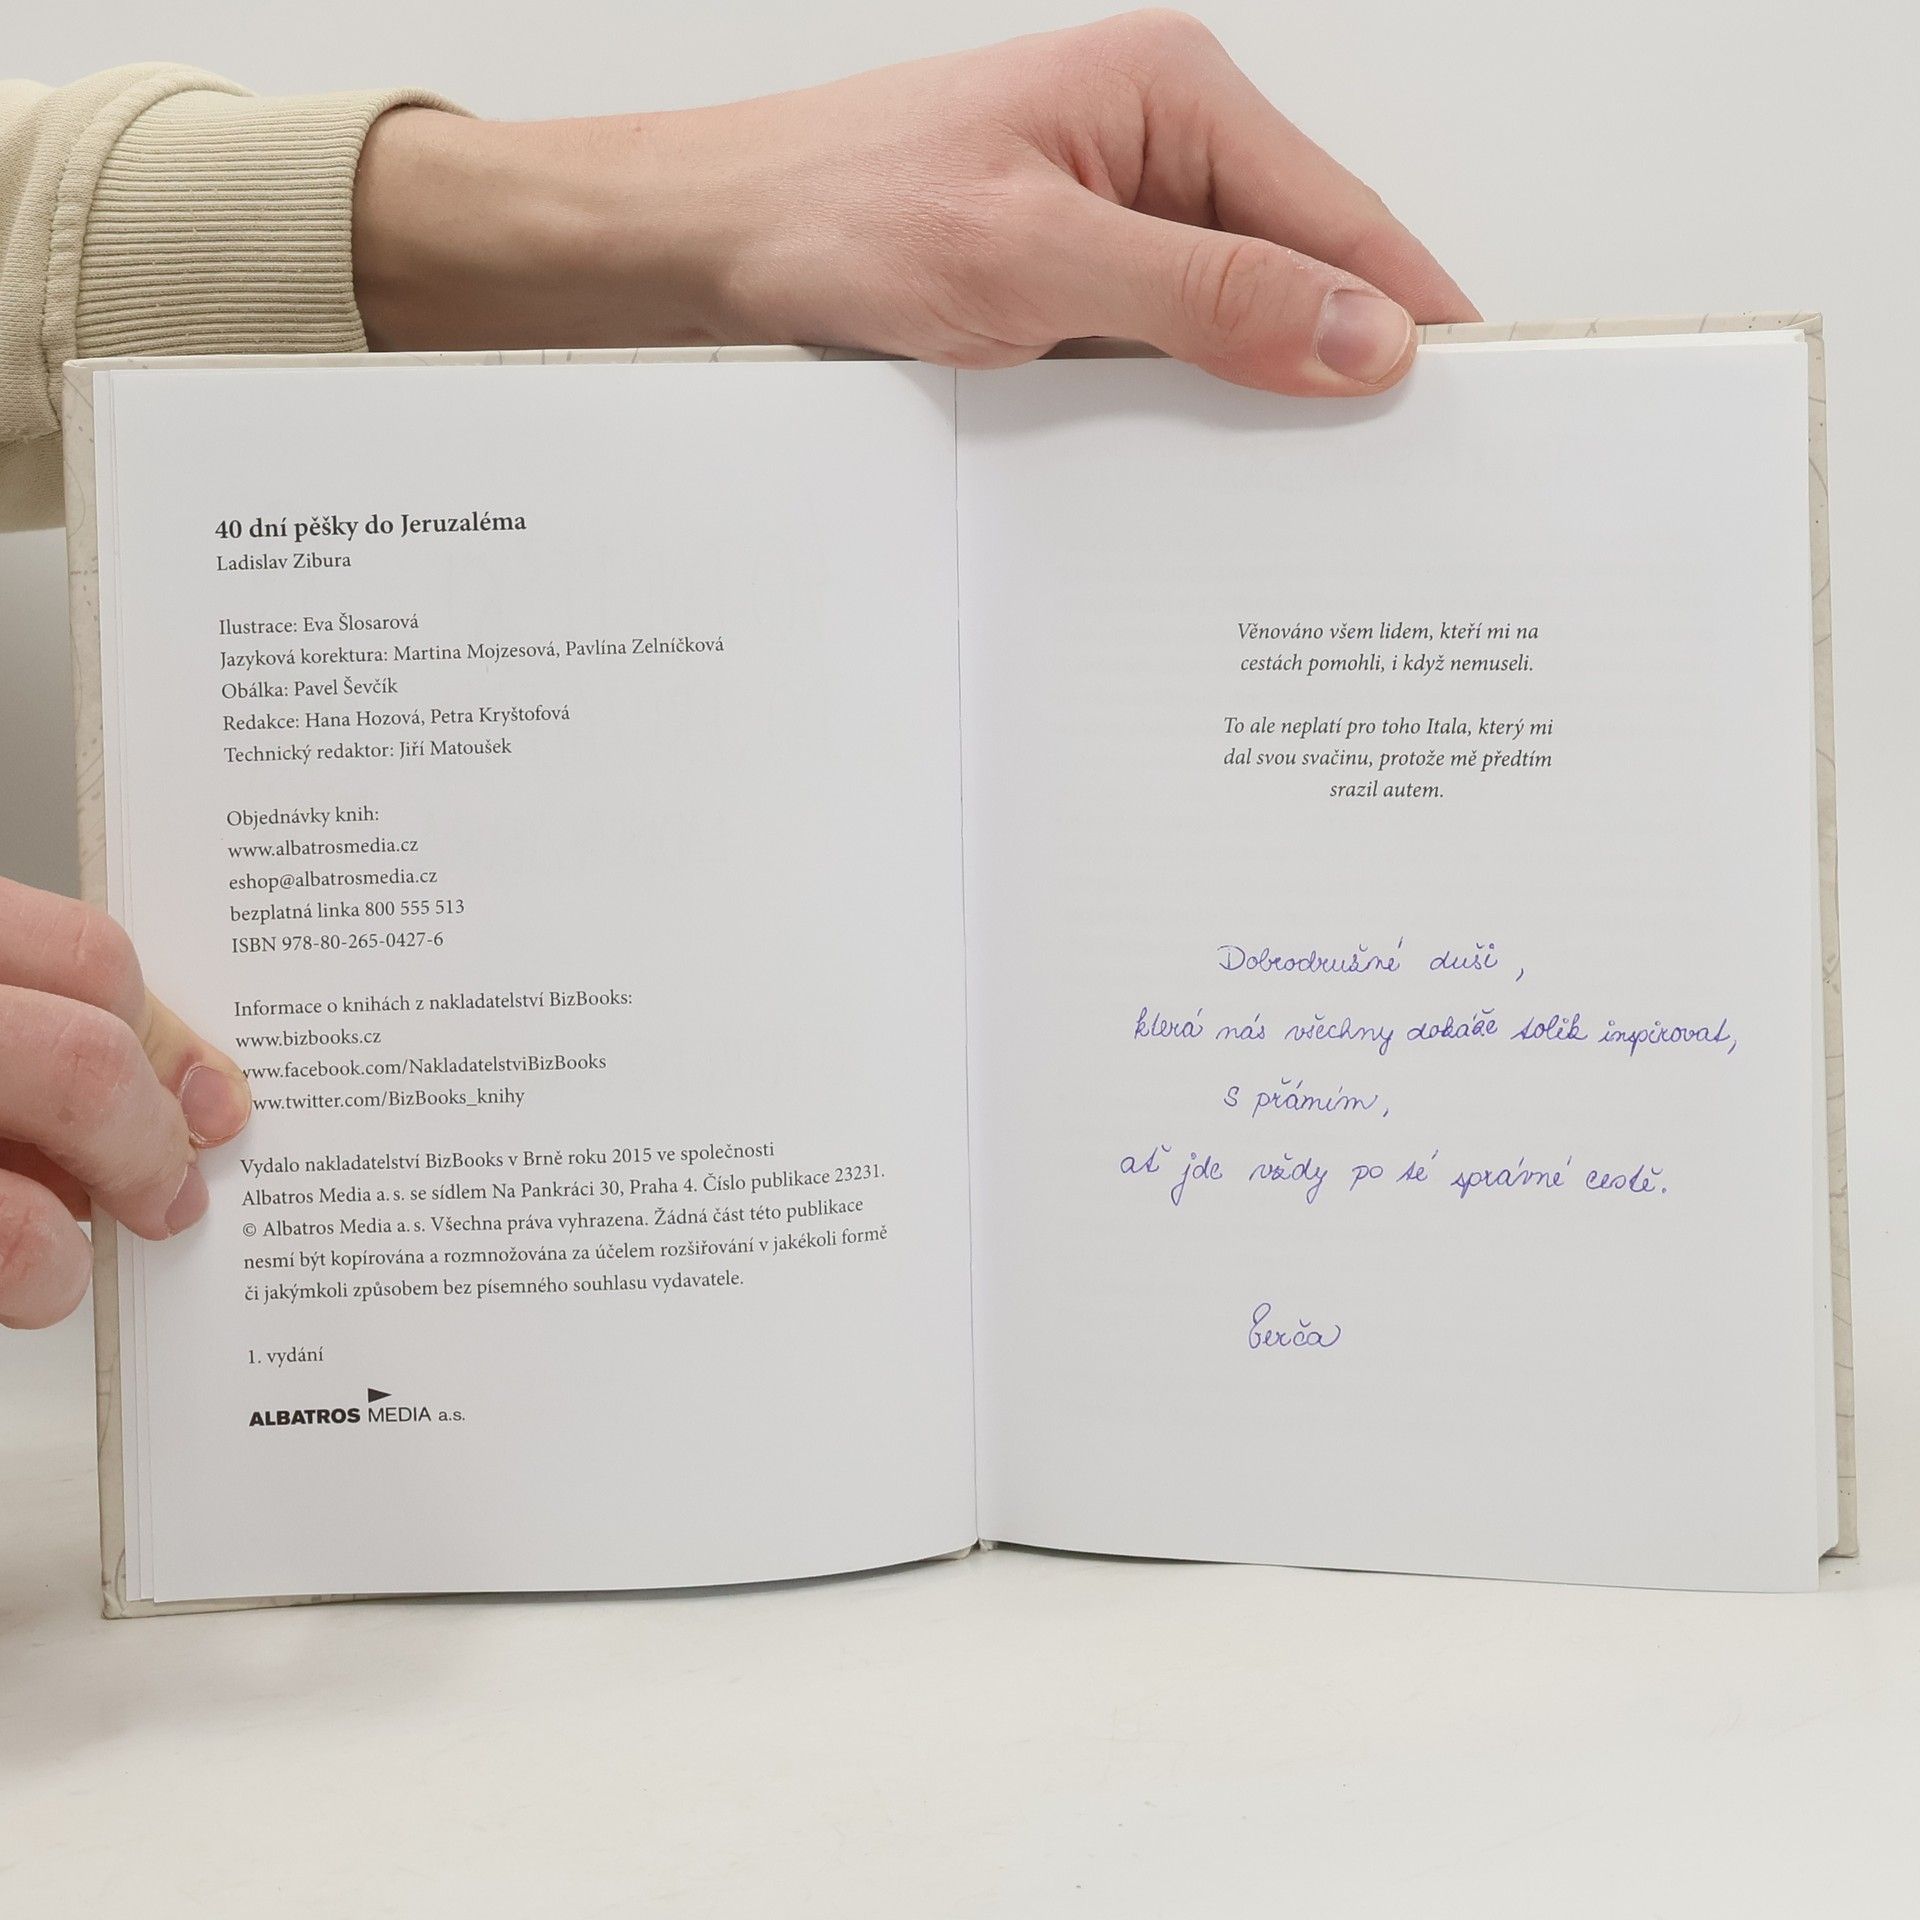 40 dní pěšky do Jeruzaléma
Ladislav Zibura
Ilustrace: Eva Šlosarová
Jazyková korektura: Martina Mojzesová, Pavlína Zelníčková
Obálka: Pavel Ševčík
Redakce: Hana Hozová, Petra Kryštofová
Technický redaktor: Jiří Matoušek
Objednávky knih:
www.albatrosmedia.cz
eshop@albatrosmedia.cz
bezplatná linka 800 555 513
ISBN 978-80-265-0427-6
Informace o knihách z nakladatelství BizBooks:
www.bizbooks.cz
www.facebook.com/NakladatelstviBizBooks
www.twitter.com/BizBooks_knihy
Vydalo nakladatelství BizBooks v Brně roku 2015 ve společnosti
Albatros Media a. s. se sídlem Na Pankráci 30, Praha 4. Číslo publikace 23231.
© Albatros Media a. s. Všechna práva vyhrazena. Žádná část této publikace
nesmí být kopírována a rozmnožována za účelem rozšiřování v jakékoli formě
či jakýmkoli způsobem bez písemného souhlasu vydavatele.
1. vydání
ALBATROS MEDIA a.s.
Věnováno všem lidem, kteří mi na
cestách pomohli, i když nemuseli.
To ale neplatí pro toho Itala, který mi
dal svou svačinu, protože mě předtím
srazil autem.
Dobrodrušné duši,
která nás všechny dokáže tolik inspirovat,
s přáním,
ať jde vždy po té správné cestě.
Terča